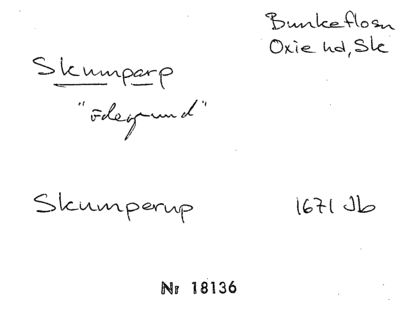 Bunkeflo sn
Oxie hd, Sk
Skumparp
"ödegrund"
Skumperup 1671 Jb
Nr 18136